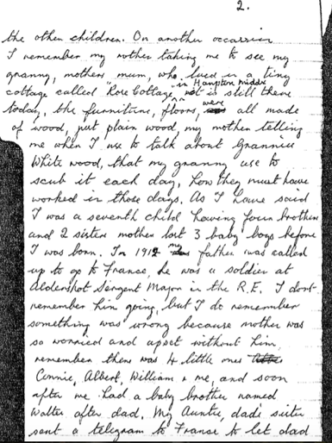 2.
the other children. On another occassion
I remember my mother taking me to see my
granny, mothers mum, who lived in a tiny
in Hampton middx
cottage called Rose Cottage, it is still there
today, the furniture, floors were all made
of wood, just plain wood, my mother telling
me when I use to talk about Grannies
White wood, that my granny use to
scub it each day, how they must have
worked in those days. As I have said
I was a seventh child having four brothers
and 2 sisters mother lost 3 baby boys before
I was born. In 191 father was called
up to go to France, he was a soldier at
Aldershot Sergent Major in the R.E. I dont
remember him going, but I do remember
something was wrong because mother was
so worried and upset without him,
remember there was 4 little ones
Connie, Albert, William & me, and soon
after me had a baby brother named
Walter after dad. My Auntie, dads sister
sent a telegram to France to let dad